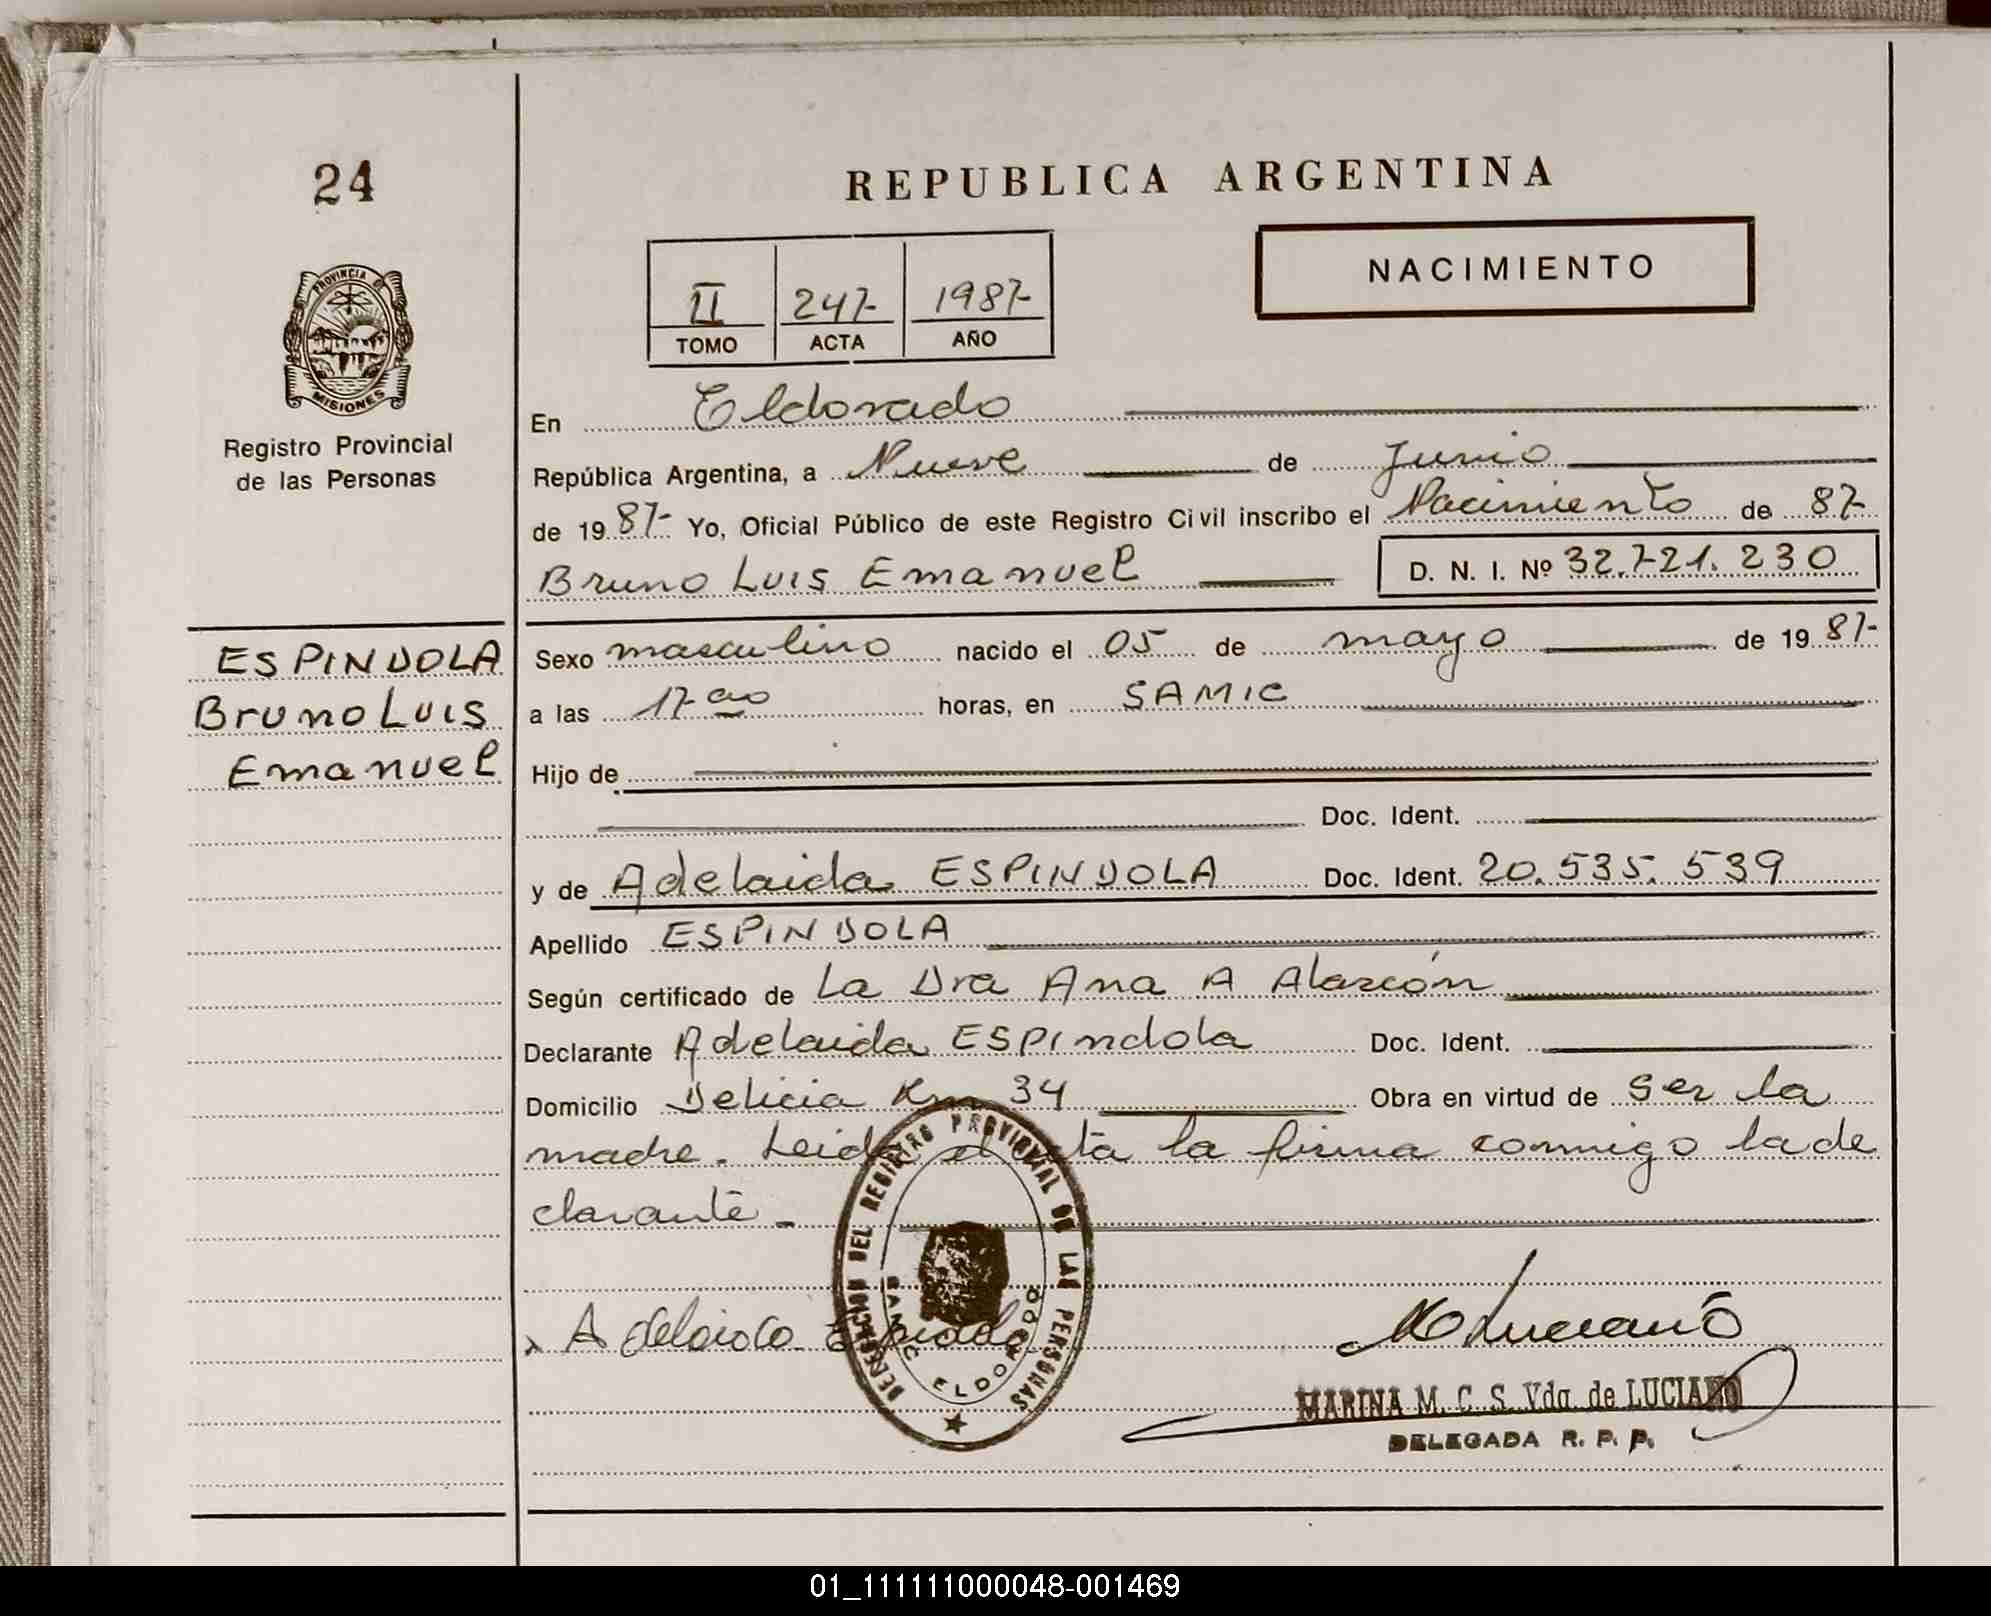 24
REPUBLICA ARGENTINA
NACIMIENTO
II 247- 1987-
TOMO ACTA AÑO
PROVINCIA DE
MISIONES
Registro Provincial
de las Personas
En Eldorado
República Argentina, a Nueve de Junio
de 1987- Yo, Oficial Público de este Registro Civil inscribo el Nacimiento de 87-
Bruno Luis Emanuel D. N. I. Nº 32.721.230
ESPINDOLA
Bruno Luis
Emanuel
Sexo masculino nacido el 05 de mayo de 1987-
a las 17 00 horas, en SAMIC
Hijo de
Doc. Ident.
y de Adelaida ESPINDOLA Doc. Ident. 20.535.539
Apellido ESPINDOLA
Según certificado de La Dra Ana A Alarcón
Declarante Adelaida ESPINDOLA Doc. Ident.
Domicilio Delicia Km 34 Obra en virtud de ser la
madre. Leida el acta la firma conmigo la de
clarante -
DELEGACION DEL REGISTRO PROVINCIAL DE LAS PERSONAS
SAMIC ELDORADO
x Adelaida
MARINA M. C. S. Vda. de LUCIANO
DELEGADA R. P. P.
01_111111000048-001469